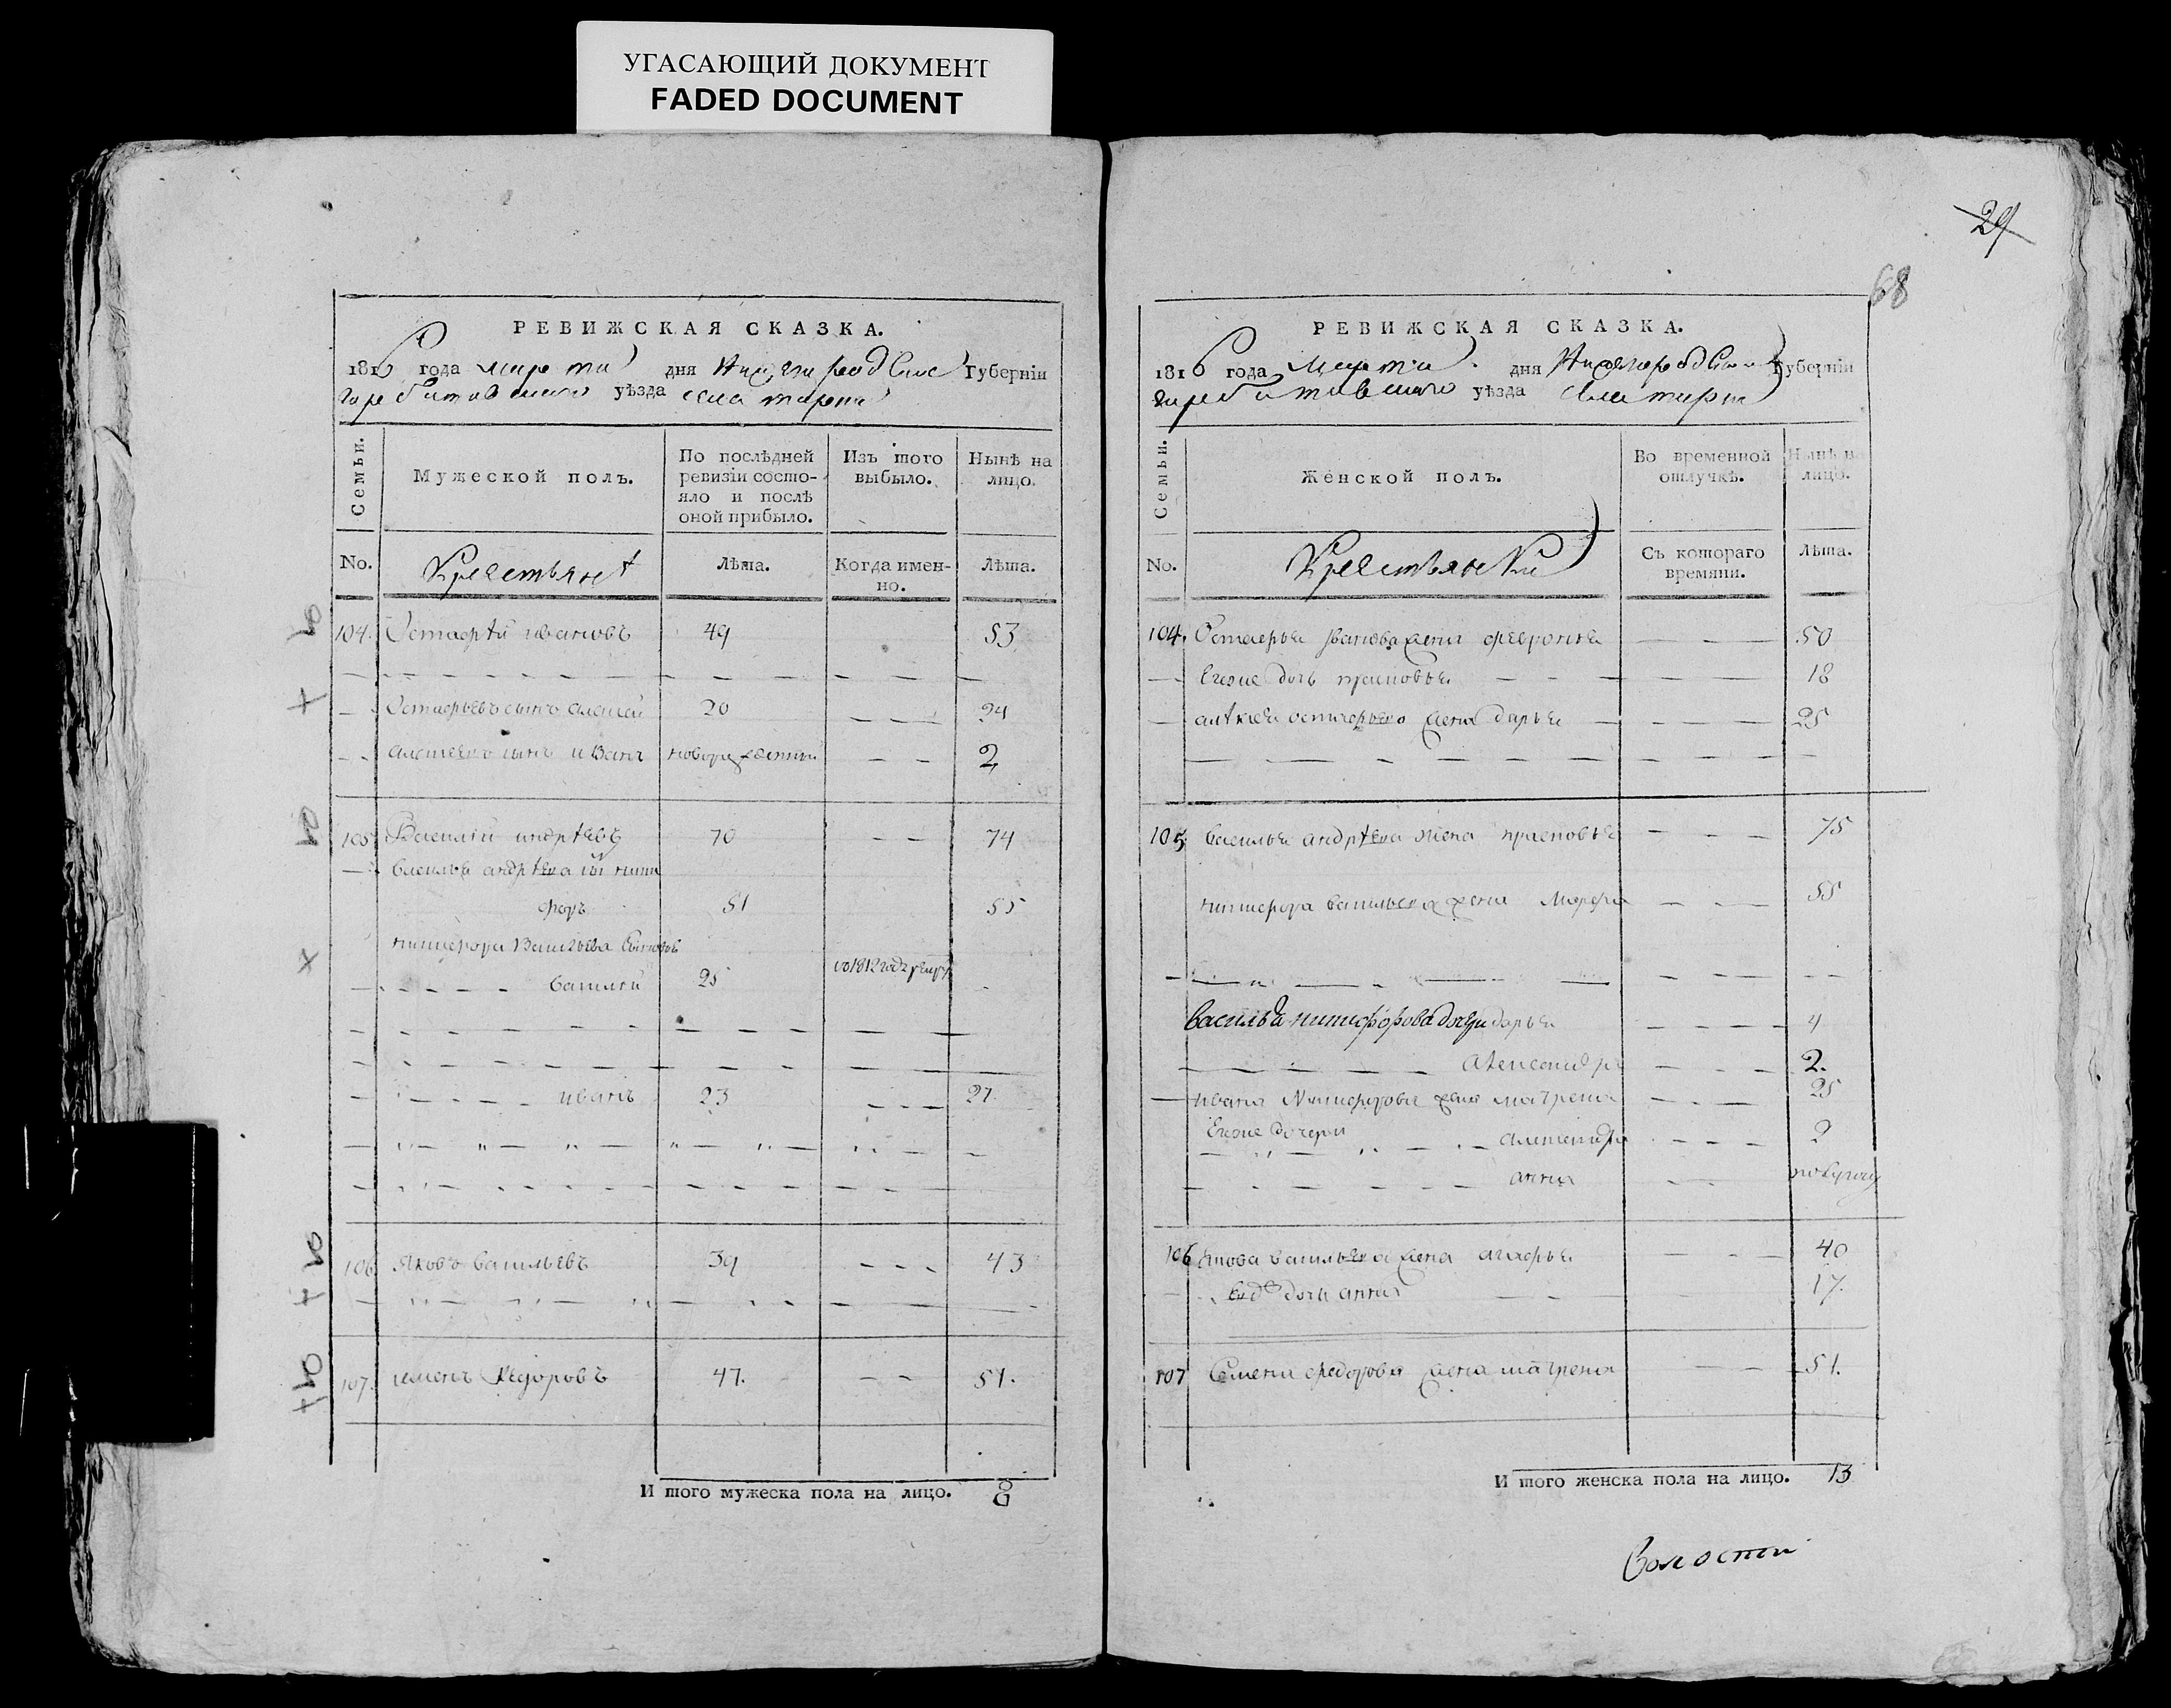 УГАСАЮЩИЙ ДОКУМЕНТ
FADED DOCUMENT
РЕВИЖСКАЯ СКАЗКА.
1816 года марта дня Нижегородской Губерніи
горбатовскаго уѣзда села
Семьи.
Мужеской полъ.
По послѣдней ревизіи состояло и послѣ оной прибыло.
Изъ того выбыло.
Нынѣ на лицо.
No.
Крестьянѣ
Лѣта.
Когда именно.
Лѣта.
104. Остафѣй ивановъ 49 53
Остафьевъ сынъ алексѣй 20 24
алексѣевъ сынъ иванъ новорожденный 2
105. Василий андрѣевъ 70 74
василья андрѣева сынъ ники
форъ 51 55
никифора васильева сыновья
василий 25 1812 году
иванъ 23 27
106. Яковъ васильевъ 39 43
107. семенъ Федоровъ 47. 51.
И того мужеска пола на лицо. 8
29
68
РЕВИЖСКАЯ СКАЗКА.
1816 года марта дня Нижегородской Губерніи
горбатовскаго уѣзда села
Семьи.
Женской полъ.
Во временной отлучкѣ.
Нынѣ на лицо.
No.
Крестьянки
Съ котораго времяни.
Лѣта.
104. Остафья иванова жена февронья 50
Евоже дочь прасковья 18
алѣксея остафьева жена дарья 25
105. василья андрѣева жена прасковья 75
никифора васильева жена Марфа 55
василья никифорова дочери дарья 4
александра 2.
ивана Никифорова жена матрена 25
Евоже дочери александра 2
анна
106 якова васильева жена агафья 40
дочь анна 17.
107 Семена федорова жена матрена 51.
И того женска пола на лицо. 13
волости